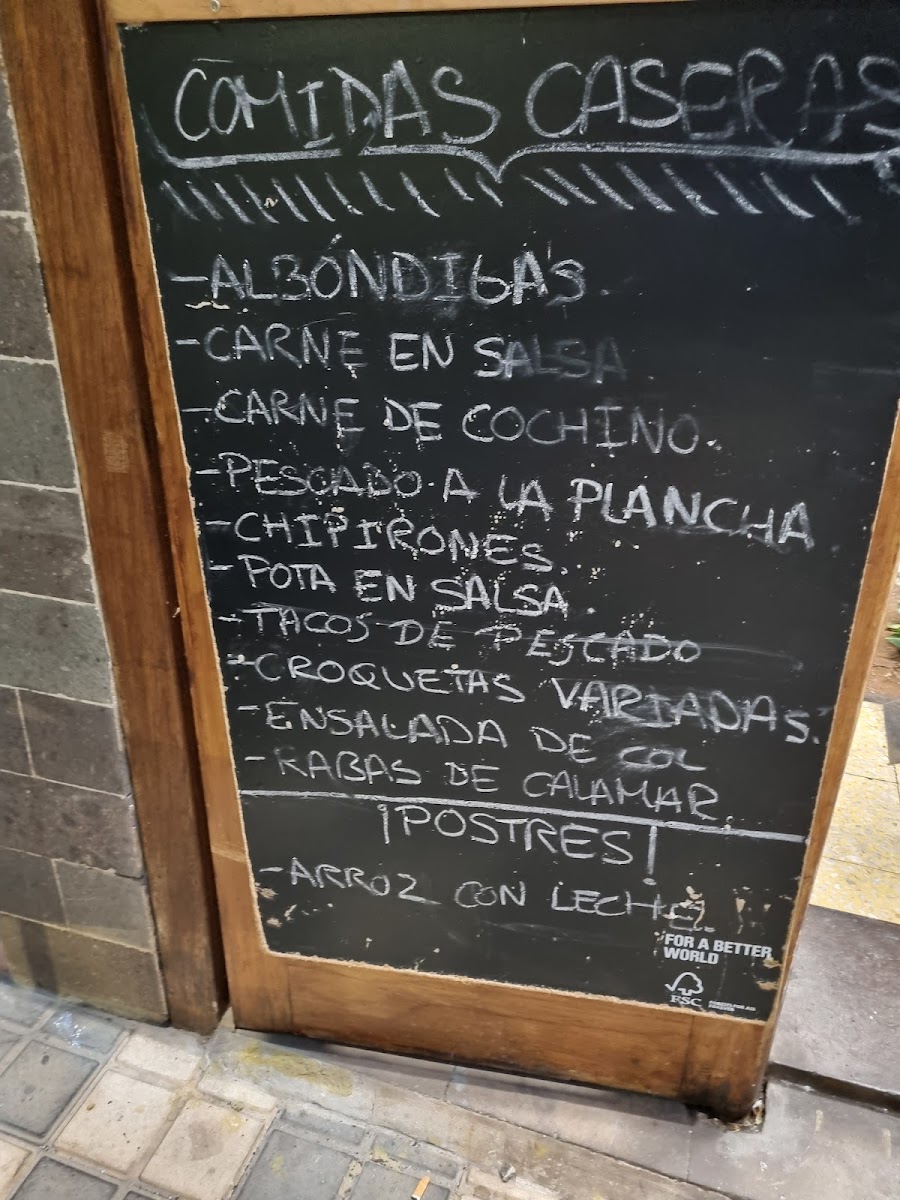 COMIDAS CASERAS
-ALBÓNDIGAS.
-CARNE EN SALSA
-CARNE DE COCHINO.
-PESCADO A LA PLANCHA
-CHIPIRONES.
-POTA EN SALSA.
-TACOS DE PESCADO
-CROQUETAS VARIADAS.
-ENSALADA DE COL
-RABAS DE CALAMAR.
¡POSTRES!
-ARROZ CON LECHE
FOR A BETTER
WORLD
FSC